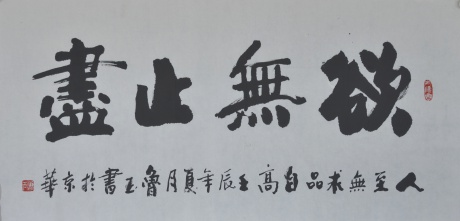 欲無止盡
人至無求品自高壬辰年夏月魯玉書於京華